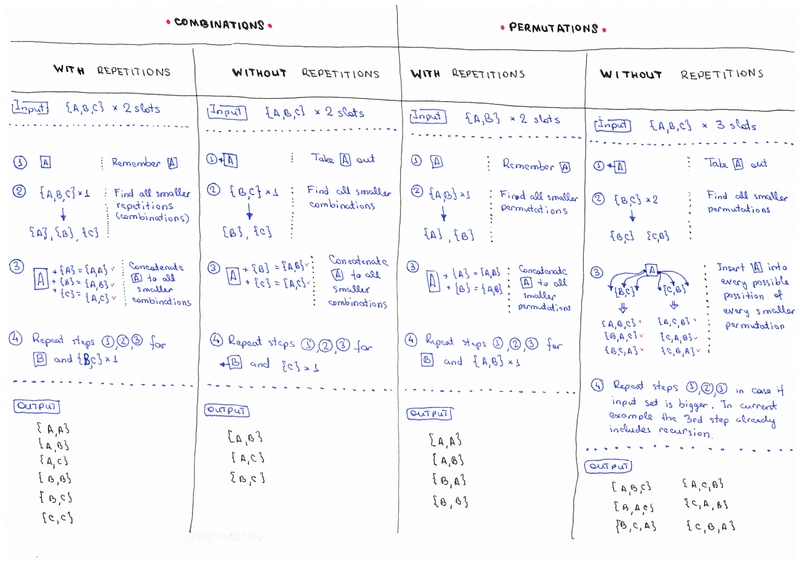 • COMBINATIONS •
WITH REPETITIONS
Input {A,B,C} × 2 slots
① A Remember A
② {A,B,C}×1 Find all smaller
repetitions
(combinations)
{A}, {B}, {C}
③ A + {A} = {A,A} ✓ Concatenate
+ {B} = {A,B} ✓ A to all
+ {C} = {A,C} ✓ smaller
combinations
④ Repeat steps ①,②,③ for
B and {B,C}×1
OUTPUT
{A,A}
{A,B}
{A,C}
{B,B}
{B,C}
{C,C}
WITHOUT REPETITIONS
Input {A,B,C} × 2 slots
① ←A Take A out
② {B,C}×1 Find all smaller
combinations
{B}, {C}
③ A + {B} = {A,B} ✓ Concatenate
+ {C} = {A,C} ✓ A to all
smaller
combinations
④ Repeat steps ①,②,③ for
←B and {C}×1
OUTPUT
{A,B}
{A,C}
{B,C}
• PERMUTATIONS •
WITH REPETITIONS
Input {A,B} × 2 slots
① A Remember A
② {A,B}×1 Find all smaller
permutations
{A}, {B}
③ A + {A} = {A,A} Concatenate
+ {B} = {A,B} A to all
smaller
permutations
④ Repeat steps ①,②,③ for
B and {A,B}×1
OUTPUT
{A,A}
{A,B}
{B,A}
{B,B}
WITHOUT REPETITIONS
Input {A,B,C} × 3 slots
① ←A Take A out
② {B,C}×2 Find all smaller
permutations
{B,C} {C,B}
③ A Insert A into
{B,C} {C,B} every possible
possition of
every smaller
permutation
{A,B,C} ✓ {A,C,B} ✓
{B,A,C} ✓ {C,A,B} ✓
{B,C,A} ✓ {C,B,A} ✓
④ Repeat steps ①,②,③ in case if
input set is bigger. In current
example the 3rd step already
includes recursion.
OUTPUT
{A,B,C} {A,C,B}
{B,A,C} {C,A,B}
{B,C,A} {C,B,A}